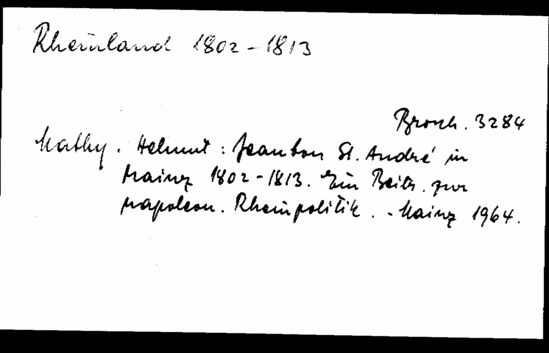 Rheinland 1802-1813
Brosch. 3284
Mathy, Helmut: Jeanbon St. André in
Mainz 1802-1813. Ein Beitr. zur
napoleon. Rheinpolitik. - Mainz 1964.